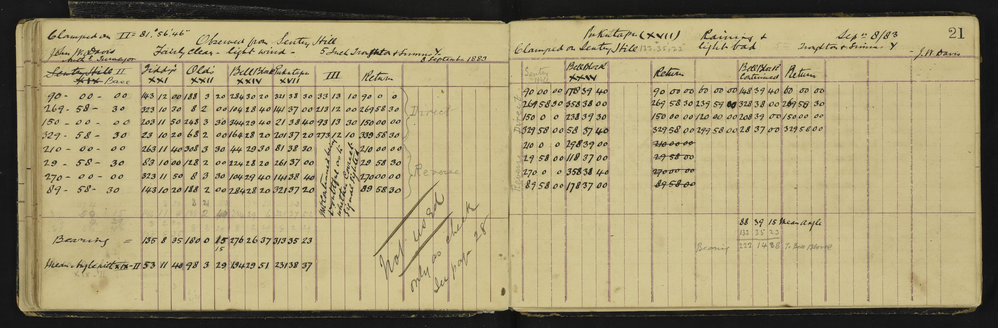 Clamped on II = 81° 56' 45"
John W. Davis
Asst Surveyor
Observed from Sentry Hill
Fairly Clear - light wind -
5 Inch Troughton & Simms Y.
8 September 1883
Sentry Hill II
XIX Base
XXI
Old
XXII
Bell Block
XXIV
Puketapu
XVII
III
Return
90 - 00 - 00 143 12 00 188 3 20 284 30 20 321 38 30 33 13 10 90 0 0
269 - 58 - 30 323 10 30 8 2 00 104 28 40 141 37 00 213 12 00 269 58 30
150 - 00 - 00 203 11 50 248 3 30 344 29 40 21 38 40 93 13 30 150 00 00
329 - 58 - 30 23 10 20 68 2 00 164 28 20 201 37 20 273 12 00 339 58 30
210 - 00 - 00 263 11 40 308 3 30 44 29 30 81 38 30 210 00 00
29 - 58 - 30 83 10 00 128 2 00 224 28 20 261 37 00 29 58 30
270 - 00 - 00 323 11 50 8 3 30 104 29 40 141 38 40 270 00 00
89 - 58 - 30 143 10 20 188 2 00 284 28 20 321 37 20 89 58 30
Direct
Reverse
Bearing = 135 8 35 180 0 15 276 26 37 313 35 23
Mean Angle with XIX-II 53 11 40 98 3 29 194 29 51 231 38 37
Not used
only as check
See page 28
Puketapu (XXII)
Raining &
light bad
Sepr 8/83
21
Clamped on Sentry Hill 133.35.23
Troughton & Simms Y
- J.W. Davis
Sentry
Hill
Bell Block
XXIV
Return
Bell Block
Continued
Return
90 00 00 178 39 40 90 00 00 60 00 00 148 39 40 60 00 00
269 58 30 358 38 00 269 58 30 239 59 00 328 38 00 269 58 30
150 0 0 238 39 30 150 00 00 120 00 00 208 39 00 150 00 00
329 58 00 58 37 40 329 58 00 299 58 00 28 37 00 329 58 00
210 0 0 298 39 00 210 00 00
29 58 00 118 37 00 29 58 00
270 00 00 358 38 40 270 00 00
89 58 00 178 37 00 89 58 00
88 39 15 Mean angle
133 35 23
Bearing 222 14 38 To Bell Block